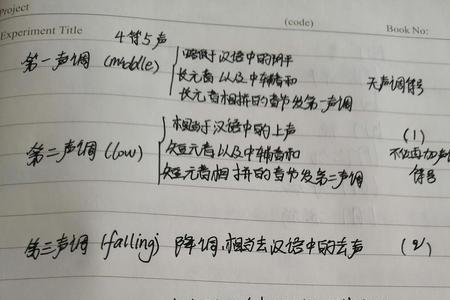 Project
(code)
Experiment Title
Book No:
4符5声
略低于汉语中的阴平
第一声调 (middle) 长元音以及中辅音和 无声调符号
长元音相拼的音节发第一声调
相当于汉语中的上声 (1)
第二声调 (low) 短元音以及中辅音和
短元音相拼的音节发第二声调 符号
第三声调 (falling) 降调,相当去汉语中的去声 (2)